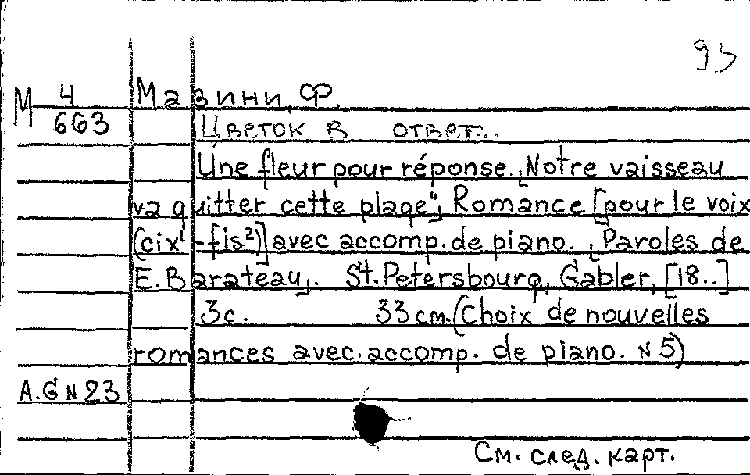 95
М 4 Мазини, Ф.
663 Цветок в ответ..
Une fleur pour réponse. „Notre vaisseau
va quitter cette plage“; Romance [pour le voix
(cix¹-fis²)] avec accomp. de piano. „Paroles de
E. Barateau„. St. Petersbourg, Gabler, [18..]
3с. 33 см. (Choix de nouvelles
romances avec. accomp. de piano. N 5)
A.G N 23
См. след. карт.